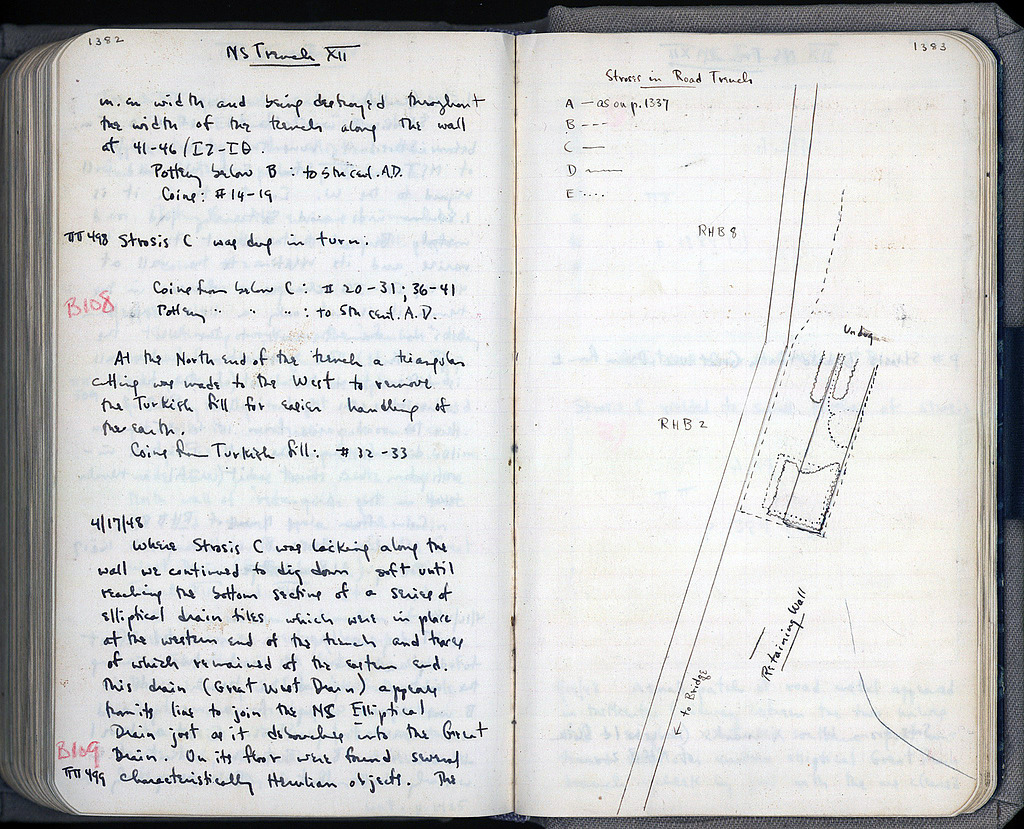 1382
NS Trench XII
m. in width and being destroyed throughout
the width of the trench along the wall
at 41-46/IZ-IΘ
Pottery below B : to 5th cent. A.D.
Coins: #14-19
ΠΠ 498 Strosis C was dug in turn.
Coins from below C : # 20-31; 36-41
B108
Pottery " " " : to 5th cent. A.D.
At the North end of the trench a triangular
cutting was made to the West to remove
the Turkish fill for easier handling of
the earth.
Coins from Turkish fill: #32-33
4/17/48
Where Strosis C was lacking along the
wall we continued to dig down soft until
reaching the bottom section of a series of
elliptical drain tiles, which were in place
at the western end of the trench and traces
of which remained at the eastern end.
This drain (Great West Drain) appears
from its line to join the NS Elliptical
Drain just as it disbouches into the Great
B109
Drain. On its floor were found several
ΠΠ 499 characteristically Herulian objects. The
1383
Strosis in Road Trench
A — as on p. 1337
B ---
C —
D —
E ....
RHB 8
Undug
RHB 2
Retaining Wall
to Bridge